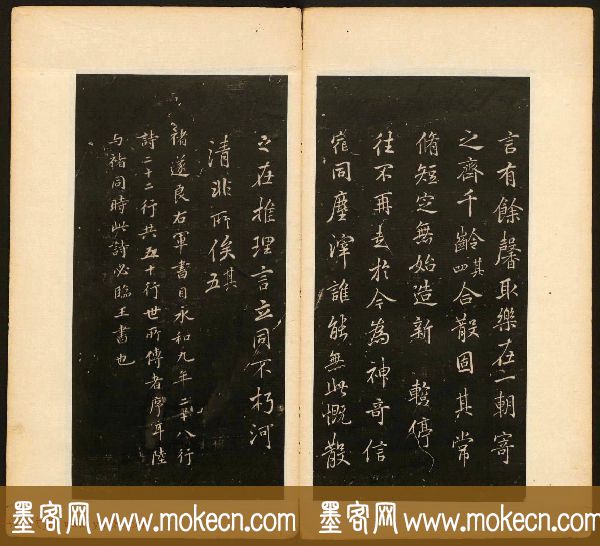 言有餘馨取樂在一朝寄
之齊千齡其四合散固其常
脩短定無始造新 暫停
往不再起於今為神奇信
宿同塵滓誰能無此慨散
之在推理言立同不朽河
清非所俟其五
褚遂良右軍書目永和九年 二十八行
詩二十二行共五十行世所傳者序耳陸
与褚同時此詩必臨王書也
墨客网 www.mokecn.com 墨客网 www.mokecn.com